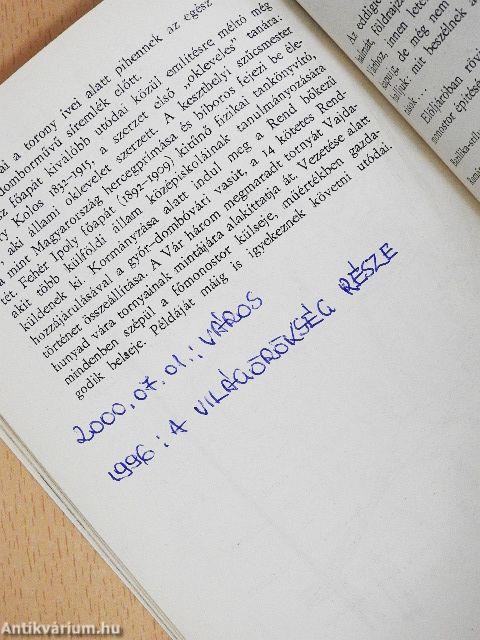 ai a torony ivei alatt pihennek az egész
domborművű síremlék előtt.
sz főapát kiválóbb utódai közül említésre méltó még
ry Kolos 1832-1915, a szerzet első „okleveles” tanára:
, aki állami oklevelet szerzett. A keszthelyi szűcsmester
a mint Magyarország hercegprímása és bíboros fejezi be éle-
tét. Fehér Ipoly főapát (1892-1909) kitűnő fizikai tankönyvíró,
akit több külföldi állam középiskoláinak tanulmányozására
küldenek ki. Kormányzása alatt indul meg a Rend bőkezű
hozzájárulásával a győr-dombóvári vasút, a 14 kötetes Rend-
történet összeállítása. A Vár három megmaradt tornyát Vajda-
hunyad vára tornyainak mintájára alakíttatja át. Vezetése alatt
mindenben szépül a főmonostor külseje, műértékben gazda-
godik belseje. Példáját máig is igyekeznek követni utódai.
2000.07.01.: VÁROS
1996: A VILÁGÖRÖKSÉG RÉSZE
Az eddige
innen lete
de még nem
mit beszélnek a
Előljáróban rövi
monostor építésé
Antikvárium.hu